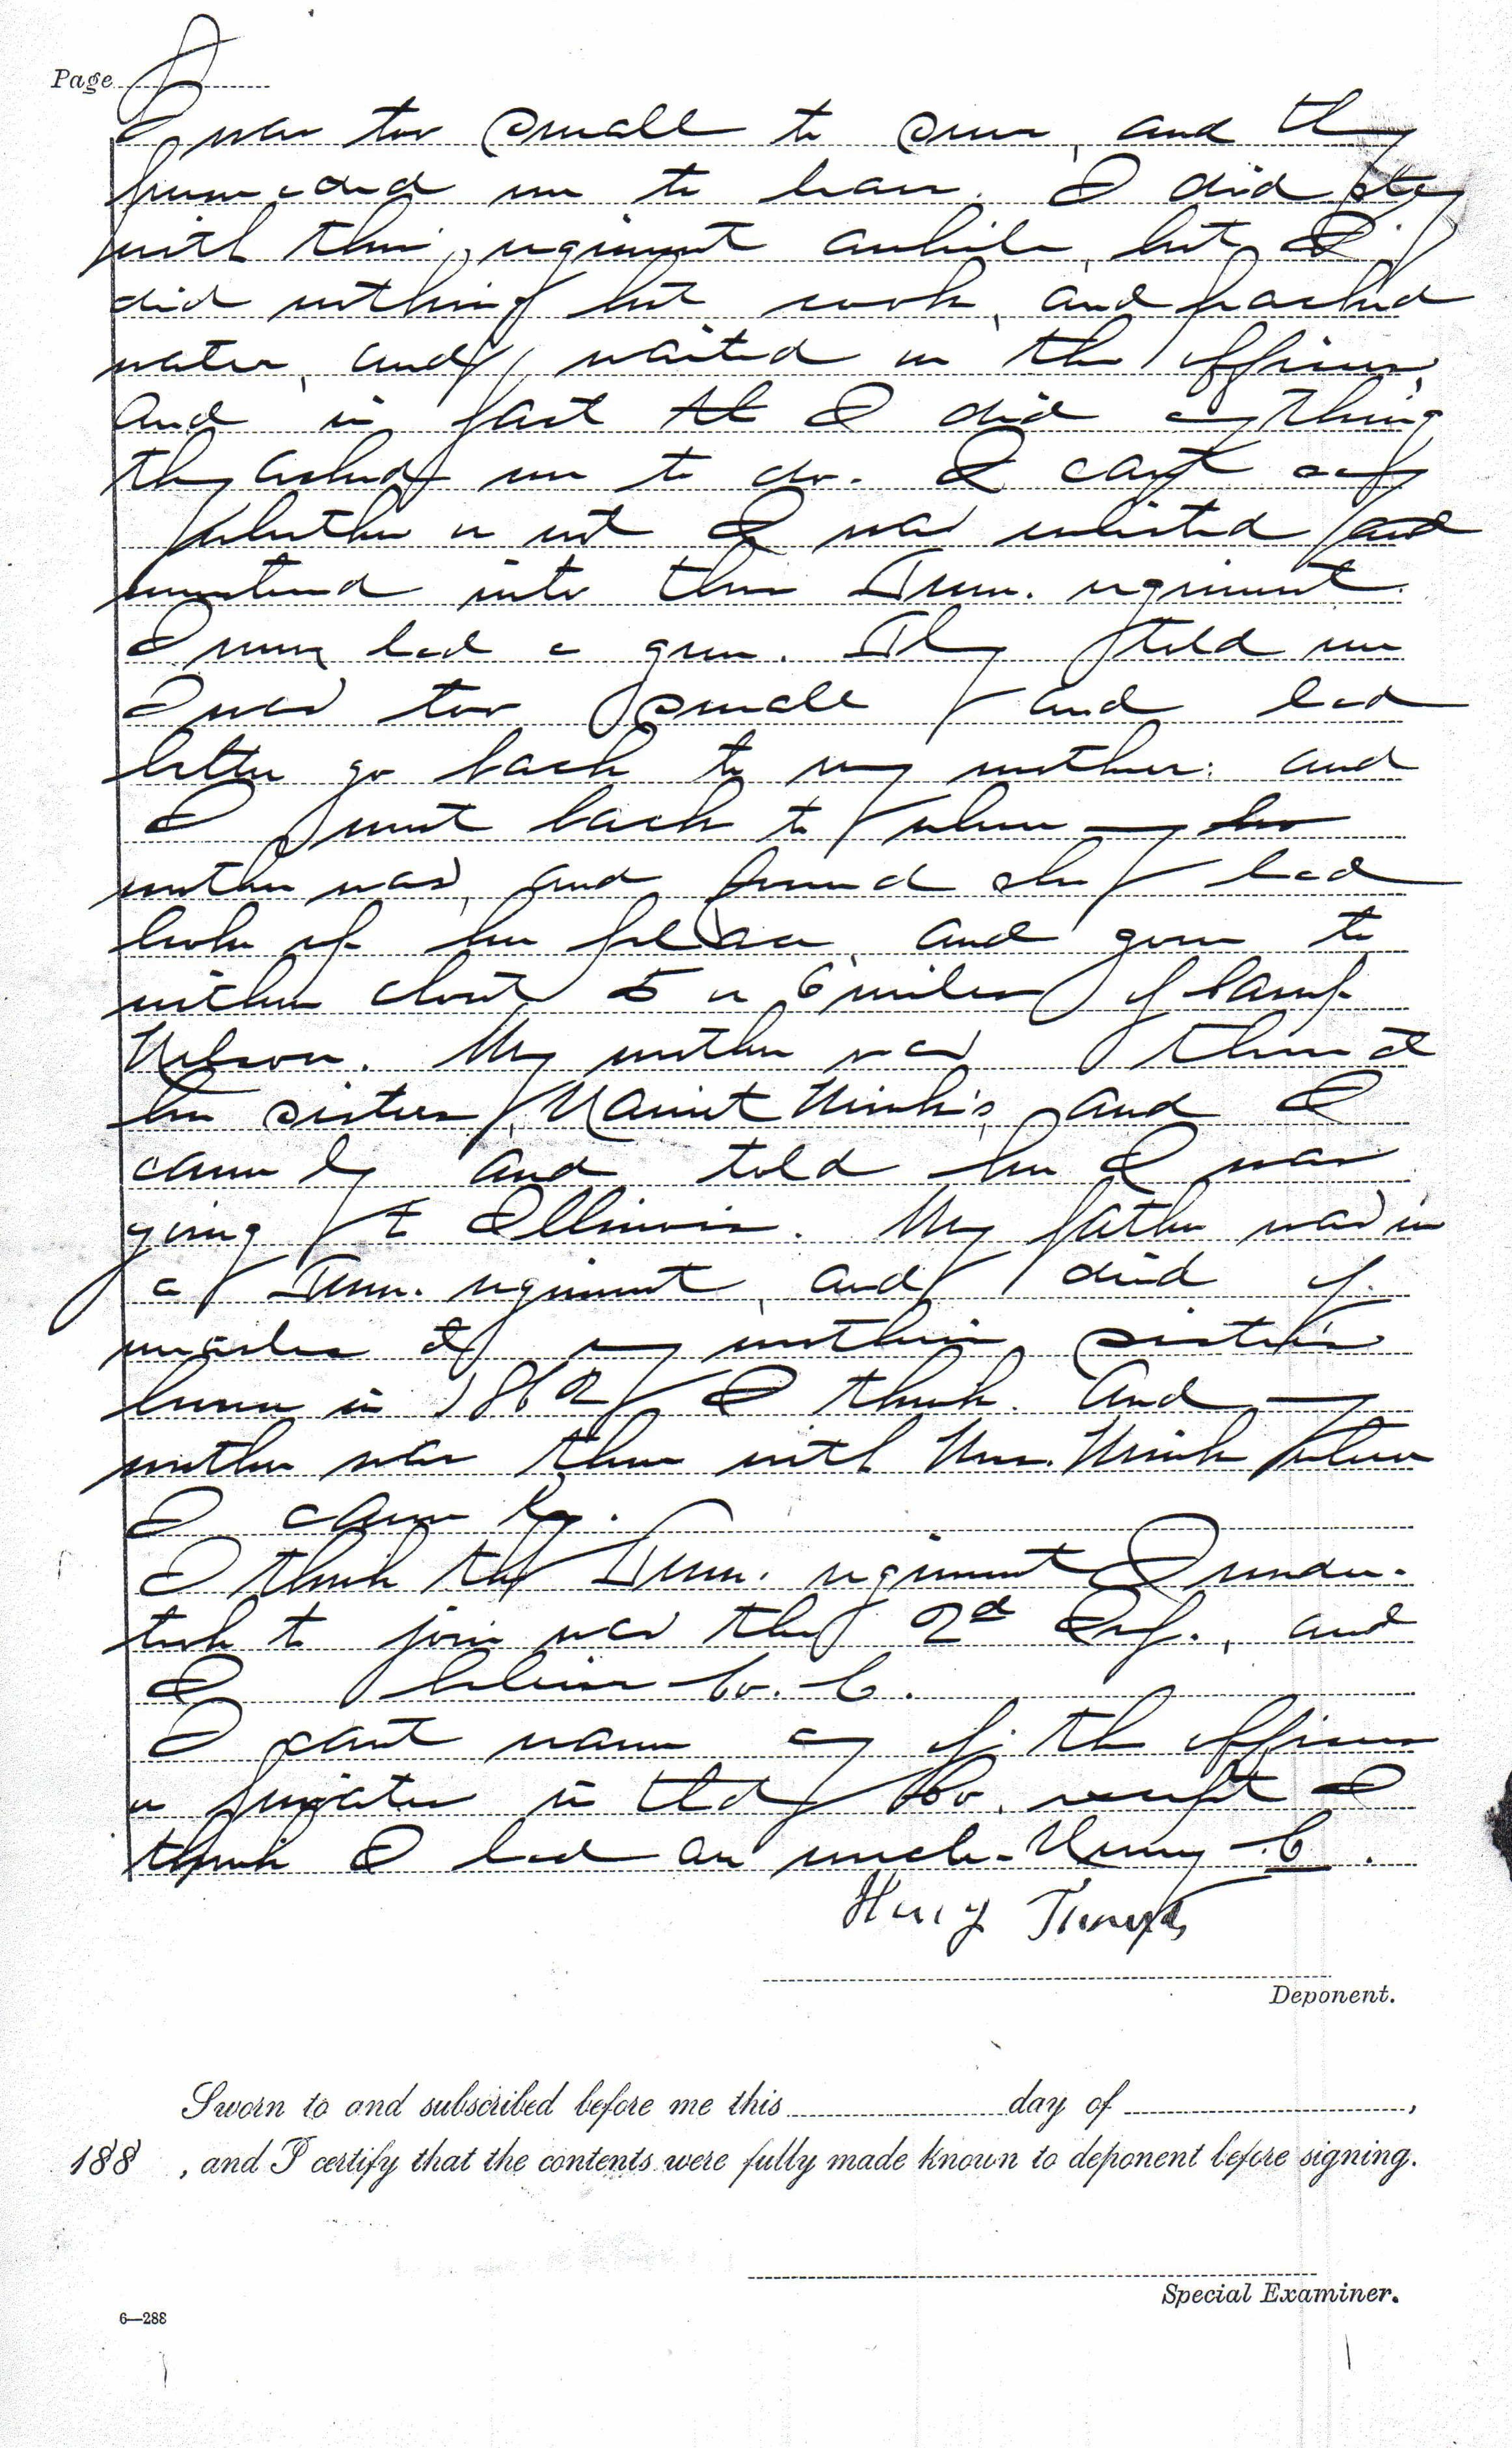 Page
I was too small to serve, and they
persuaded me to leave. I did stay
with this regiment awhile, but I
did nothing but cook, and packed
water, and waited on the officers,
and in fact I did anything
they asked me to do. I cant say
whether or not I was enlisted and
mustered into this Tenn. regiment.
I never had a gun. They told me
I was too small and had
better go back to my mother: and
I went back to where my
mother was, and found she had
broke up her place, and gone to
within about 5 or 6 miles of Camp
Nelson. My mother was then at
her sisters, and I
came by and told her I was
going to Illinois. My father was in
a Tenn. regiment, and died of
measles at my mothers sisters
house in 1862 I think. And my
mother was there with Mrs. when
I came by.
I think the Tenn. regiment I under-
took to join was the 2d Inf., and
I believe Co. C.
I cant name any of the officers
or privates in that Co. except I
think I had an uncle - Henry - C.
Henry
Deponent.
Sworn to and subscribed before me this day of ,
188 , and I certify that the contents were fully made known to deponent before signing.
Special Examiner.
6—288